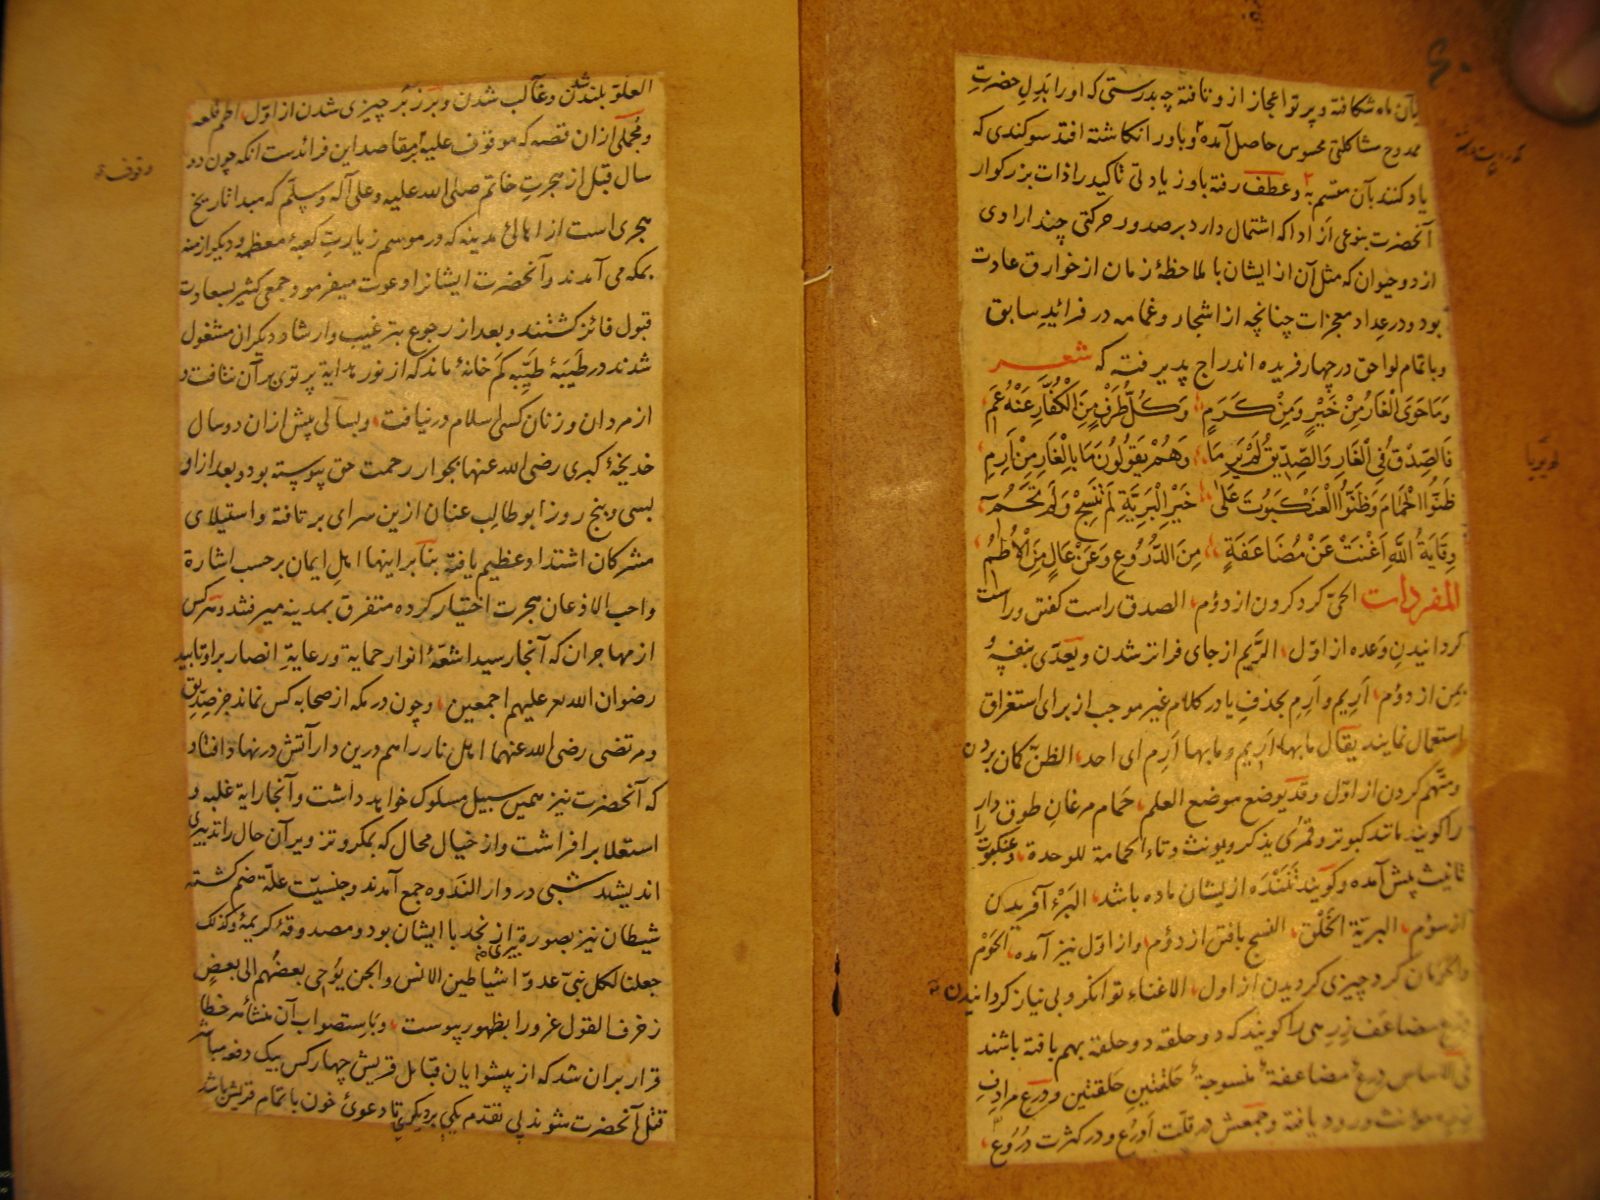 بآن ماه شکافته و پرتو اعجاز ازو تافته چه بدرستی که او را بدل حضرت
ممدوح مشاکلتی محسوس حاصل آمده و باور انکاشته افتد سوکندی که
یاد کنند بآن مقسم به و عطف رفته باوز یادتی تاکید را ذات بزرکوار
آنحضرت بنوعی از ادا که اشتمال دارد بر صدور حرکتی چند ارادی
از دو حیوان که مثل آن از ایشان با ملاحظهٔ زمان از خوارق عادت
بود و در عداد معجزات چنانچه از اشجار و غمامه در فرائد سابق
و باتمام لواحق در چهار فریده اندراج پذیرفته که شعر
وَمَا حَوَى الْغَارُ مِنْ خَيْرٍ وَمِنْ كَرَمٍ وَكُلُّ طَرْفٍ مِنَ الْكُفَّارِ عَنْهُ عَمِ
فَالصِّدْقُ فِي الْغَارِ وَالصِّدِّيقُ لَمْ يَرِمَا وَهُمْ يَقُولُونَ مَا بِالْغَارِ مِنْ أَرِمِ
ظَنُّوا الْحَمَامَ وَظَنُّوا الْعَنْكَبُوتَ عَلَى خَيْرِ الْبَرِيَّةِ لَمْ تَنْسِجْ وَلَمْ تَحُمِ
وِقَايَةُ اللَّهِ أَغْنَتْ عَنْ مُضَاعَفَةٍ مِنَ الدُّرُوعِ وَعَنْ عَالٍ مِنَ الْأُطُمِ
المفردات الحمی کرد کردن از دؤم الصدق راست کفتن و راست
کردانیدن وعده از اول الریم از جای فراتر شدن و یعدی بنفسه و
بمن از دؤم اَرِیم و اَرِم بحذف یا در کلام غیر موجب از برای استغراق
استعمال نمایند یقال ما بها اَرِیم و ما بها اَرِم ای احد الظن کمان بردن
و متهم کردن از اول و قد یوضع موضع العلم حمام مرغان طوق دار
را کویند مانند کبوتر و قمری یذکر و یونث و تاء الحمامة للوحدة و عنکبوت را
تانیث پیش آمده و کویند تننده از یشان ماده باشد البرء آفریدن
از سؤم البریّة الخلق النسج بافتن از دؤم و از اول نیز آمده الحَوْم
والحومان کرد چیزی کردیدن از اول الاغناء توانکر و بی نیاز کردانیدن
مضاعف زرهی را کویند که دو حلقه دو حلقه بهم بافته باشند
فی الاساس درع مضاعفة منسوجة حلقتین حلقتین و درع مرادف
مونث ورود یافته و جمعش در قلت ادرع و در کثرت دروع
لم یریا
العلوّ بلند شدن و غالب شدن و بر زبر چیزی شدن از اول اطم قلعه
و مجملی از ان قصه که موقوف علیه مقاصد این فرائدست آنکه چون دو
سال قبل از هجرت خاتم صلی الله علیه و علی آله و سلّم که مبدا تاریخ
هجری است از اهالیٔ مدینه که در موسم زیارت کعبهٔ معظمه و دیکر ازمنه
بمکه می آمدند و آنحضرت ایشانرا دعوت میفرمود و جمعی کثیر بسعادت
قبول فائز کشتند و بعد از رجوع بترغیب و ارشاد دیکران مشغول
شدند در طَیبَهٔ طیّبه کم خانهٔ ماند که از نور هدایة پرتوی بر آن نتافت و
از مردان و زنان کسی اسلام در نیافت و بسالی پیش از ان دو سال
خدیجهٔ کبری رضی الله عنها بجوار رحمت حق پیوسته بود و بعد از او
بسی و پنج روز ابو طالب عنان ازین سرای بر تافته و استیلای
مشرکان اشتداد عظیم یافته بنا بر اینها اهل ایمان بر حسب اشارة
واجب الاذعان هجرت اختیار کرده متفرق بمدینه میرفتند و هرکس
از مهاجران که آنجا رسید اشعّهٔ انوار حمایة و رعایة انصار بر او تابید
رضوان الله علیهم اجمعین و چون در مکه از صحابه کس نماند جز صدیق
و مرتضی رضی الله عنهما اهل نار را هم درین دار آتش در نهاد افتاد
که آنحضرت نیز همین سبیل مسلوک خواهد داشت و آنجا رایة غلبه و
استعلا بر افراشت و از خیال محال که بمکر و تزویر آن حال را تدبیری
اندیشد شبی در دار الندوه جمع آمدند و جنسیّت علّة ضم کشته
شیطان نیز بصورة پیری از نجد با ایشان بود و مصدوقهٔ کریمهٔ و کذلک
جعلنا لکل نبیّ عدوّا شیاطین الانس والجن یوحی بعضهم الی بعض
زخرف القول غرورا بظهور پیوست و باستصواب آن منشأ هر خطا
قرار بران شد که از پیشوایان قبائل قریش چهار کس بیک دفعه مباشر
قتل آنحضرت شوند بی تقدم یکی بر دیکری تا دعویٔ خون با تمام قریش باشد